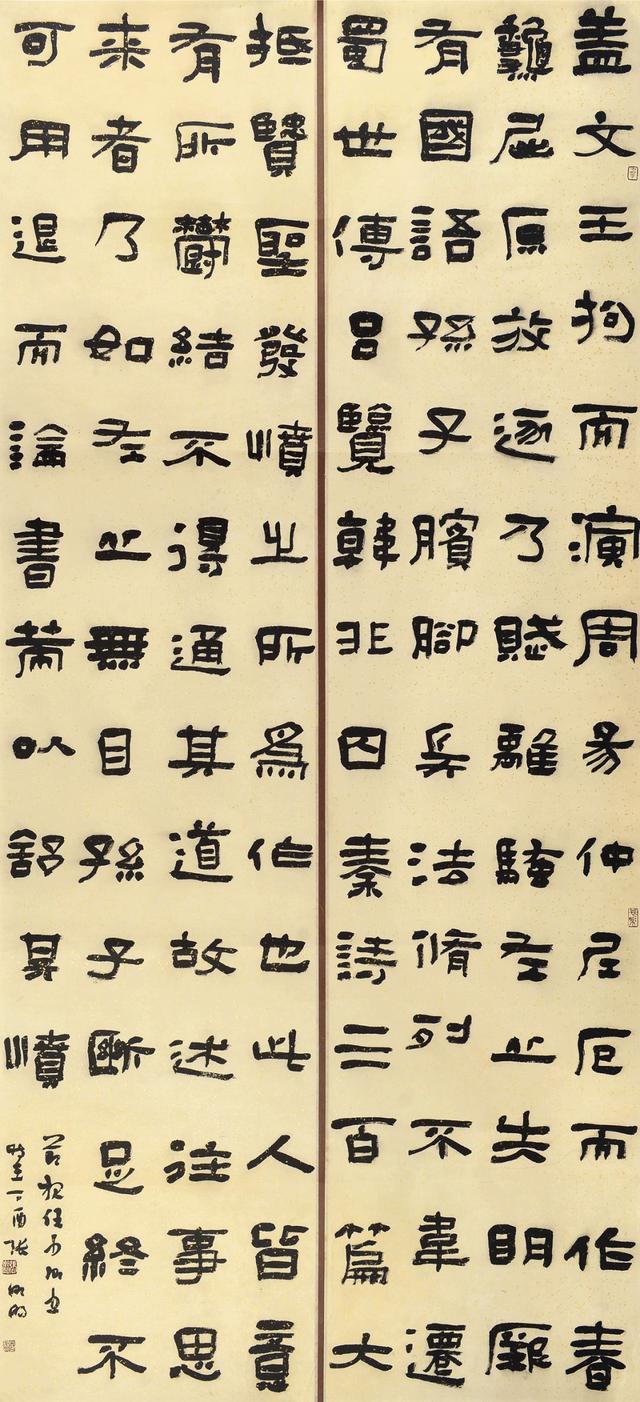 盖文王拘而演周易仲尼厄而作春
龝屈原放逐乃賦離騷左丘失明厥
有國語孫子臏腳兵法脩列不韋遷
蜀世傳吕覽韓非囚秦詩三百篇大
抵賢聖發憤之所為作也此人皆意
有所鬱結不得通其道故述往事思
来者乃如左丘無目孫子斷足終不
可用退而論書策以舒其憤
節報任少卿書
時在丁酉張